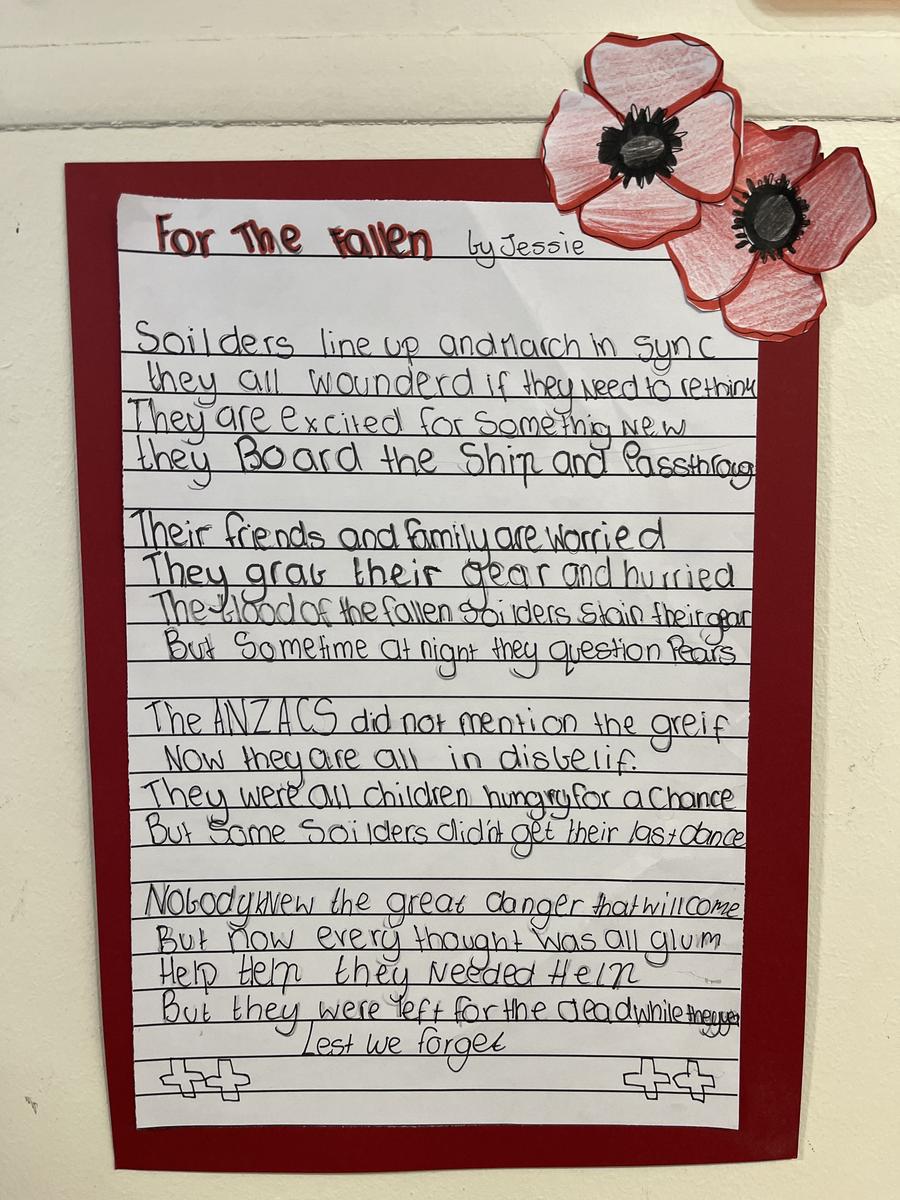 For The Fallen by Jessie
Soilders line up and March in sync
they all wounderd if they Need to rethink
They are excited for Somethig New
they Board the Ship and Passthroug
Their friends and family are worried
They grab their gear and hurried
The blood of the fallen Soilders stain their gear
But Sometime at night they question Pears
The ANZACS did not mention the greif
Now they are all in disbelif.
They were all children hungry for a Chance
But Some Soilders didn't get their last dance
Nobody knew the great danger that will come
But now every thought was all glum
Help Help they Needed Help
But they were left for the dead while
Lest we forget